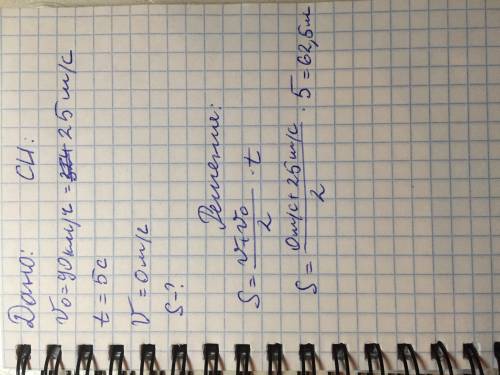 Дано: СИ:
V₀=90км/ч= 25 м/с
t = 5с
V = 0м/с
S-?
Решение:
S = (V+V₀)/2 · t
S = (0м/с + 25м/с)/2 · 5 = 62,5м